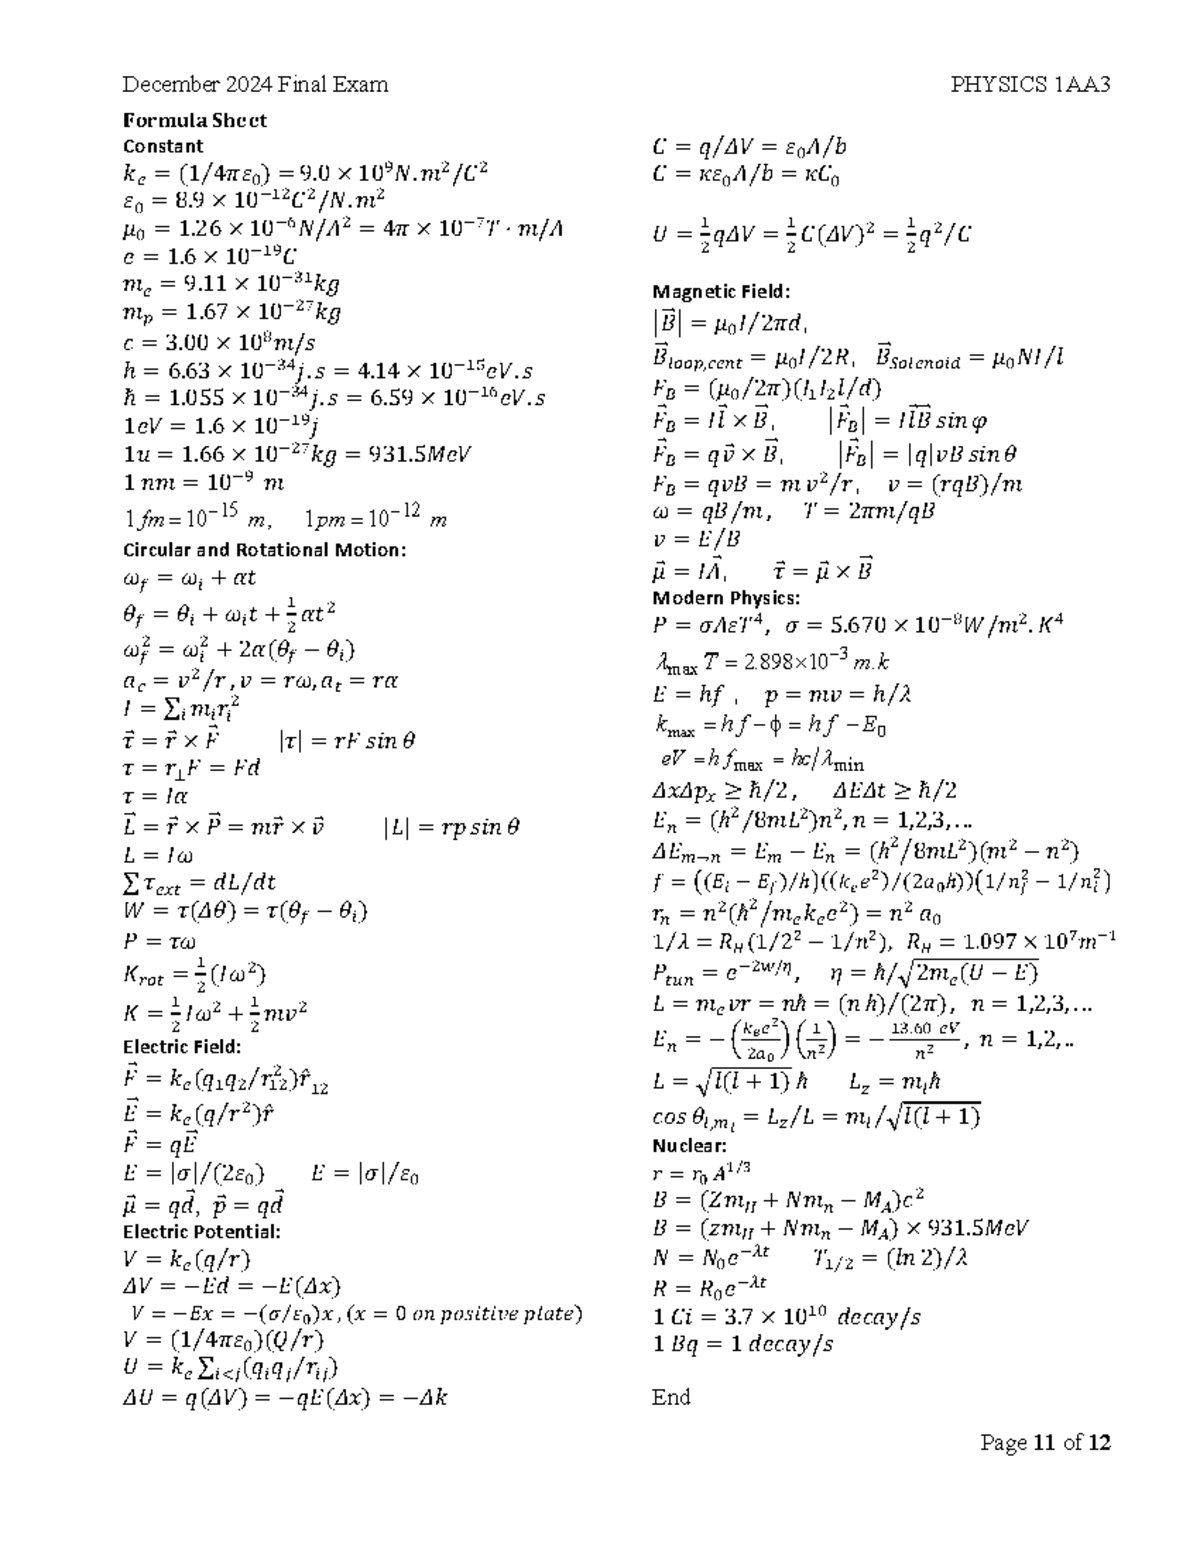 December 2024 Final Exam PHYSICS 1AA3
Formula Sheet
Constant
k_e = (1/4πε₀) = 9.0 × 10⁹N.m²/C²
ε₀ = 8.9 × 10⁻¹²C²/N.m²
μ₀ = 1.26 × 10⁻⁶N/A² = 4π × 10⁻⁷T · m/A
e = 1.6 × 10⁻¹⁹C
m_e = 9.11 × 10⁻³¹kg
m_p = 1.67 × 10⁻²⁷kg
c = 3.00 × 10⁸m/s
h = 6.63 × 10⁻³⁴j.s = 4.14 × 10⁻¹⁵eV.s
ℏ = 1.055 × 10⁻³⁴j.s = 6.59 × 10⁻¹⁶eV.s
1eV = 1.6 × 10⁻¹⁹j
1u = 1.66 × 10⁻²⁷kg = 931.5MeV
1 nm = 10⁻⁹ m
1fm = 10⁻¹⁵ m, 1pm = 10⁻¹² m
Circular and Rotational Motion:
ω_f = ω_i + αt
θ_f = θ_i + ω_i t + ½αt²
ω_f² = ω_i² + 2α(θ_f − θ_i)
a_c = v²/r , v = rω, a_t = rα
I = ∑_i m_i r_i²
τ⃗ = r⃗ × F⃗ |τ| = rF sin θ
τ = r_⊥F = Fd
τ = Iα
L⃗ = r⃗ × P⃗ = mr⃗ × v⃗ |L| = rp sin θ
L = Iω
∑τ_ext = dL/dt
W = τ(Δθ) = τ(θ_f − θ_i)
P = τω
K_rot = ½(Iω²)
K = ½Iω² + ½mv²
Electric Field:
F⃗ = k_e(q₁q₂/r₁₂²)r̂₁₂
E⃗ = k_e(q/r²)r̂
F⃗ = qE⃗
E = |σ|/(2ε₀) E = |σ|/ε₀
μ⃗ = qd⃗, p⃗ = qd⃗
Electric Potential:
V = k_e(q/r)
ΔV = −Ed = −E(Δx)
V = −Ex = −(σ/ε₀)x, (x = 0 on positive plate)
V = (1/4πε₀)(Q/r)
U = k_e ∑_{i<j}(q_i q_j/r_ij)
ΔU = q(ΔV) = −qE(Δx) = −Δk
C = q/ΔV = ε₀A/b
C = κε₀A/b = κC₀
U = ½qΔV = ½C(ΔV)² = ½q²/C
Magnetic Field:
|B⃗| = μ₀I/2πd,
B⃗_loop,cent = μ₀I/2R, B⃗_Solenoid = μ₀NI/l
F_B = (μ₀/2π)(I₁I₂l/d)
F⃗_B = Il⃗ × B⃗, |F⃗_B| = Il⃗B⃗ sin φ
F⃗_B = qv⃗ × B⃗, |F⃗_B| = |q|vB sin θ
F_B = qvB = m v²/r, v = (rqB)/m
ω = qB/m, T = 2πm/qB
v = E/B
μ⃗ = IA⃗, τ⃗ = μ⃗ × B⃗
Modern Physics:
P = σAεT⁴, σ = 5.670 × 10⁻⁸W/m².K⁴
λ_max T = 2.898×10⁻³ m.k
E = hf , p = mv = h/λ
k_max = h f − ϕ = h f − E₀
eV = h f_max = hc/λ_min
ΔxΔp_x ≥ ℏ/2, ΔEΔt ≥ ℏ/2
E_n = (h²/8mL²)n², n = 1,2,3, …
ΔE_{m→n} = E_m − E_n = (h²/8mL²)(m² − n²)
f = ((E_i − E_f)/h)((k_e e²)/(2a₀h))(1/n_f² − 1/n_i²)
r_n = n²(ℏ²/m_e k_e e²) = n² a₀
1/λ = R_H(1/2² − 1/n²), R_H = 1.097 × 10⁷m⁻¹
P_tun = e^{−2w/η}, η = ℏ/√(2m_e(U − E))
L = m_e vr = nℏ = (n h)/(2π), n = 1,2,3, …
E_n = −(k_e e²/2a₀)(1/n²) = −13.60 eV/n², n = 1,2,..
L = √(l(l + 1)) ℏ L_z = m_l ℏ
cos θ_{l,m_l} = L_z/L = m_l/√(l(l + 1))
Nuclear:
r = r₀ A^{1/3}
B = (Zm_H + Nm_n − M_A)c²
B = (zm_H + Nm_n − M_A) × 931.5MeV
N = N₀e^{−λt} T_{1/2} = (ln 2)/λ
R = R₀e^{−λt}
1 Ci = 3.7 × 10¹⁰ decay/s
1 Bq = 1 decay/s
End
Page 11 of 12